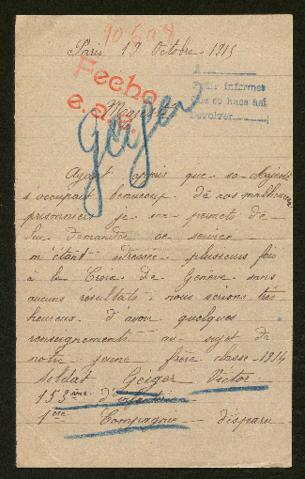 Paris 19 Octobre 1915
Fecho
Para informes
que se hace así
devolver
Majesté
Geiger
Ayant appris que sa Majesté
s'occupait beaucoup de nos malheureux
prisonniers je me permets de
lui demander ce service
m'étant adressée plusieurs fois
à la Croix de Genève sans
aucuns résultats, nous serions très
heureux d'avoir quelques
renseignements au sujet de
notre jeune frère classe 1914
soldat Geiger Victor
153ème d'infanterie
1ère Compagnie disparu